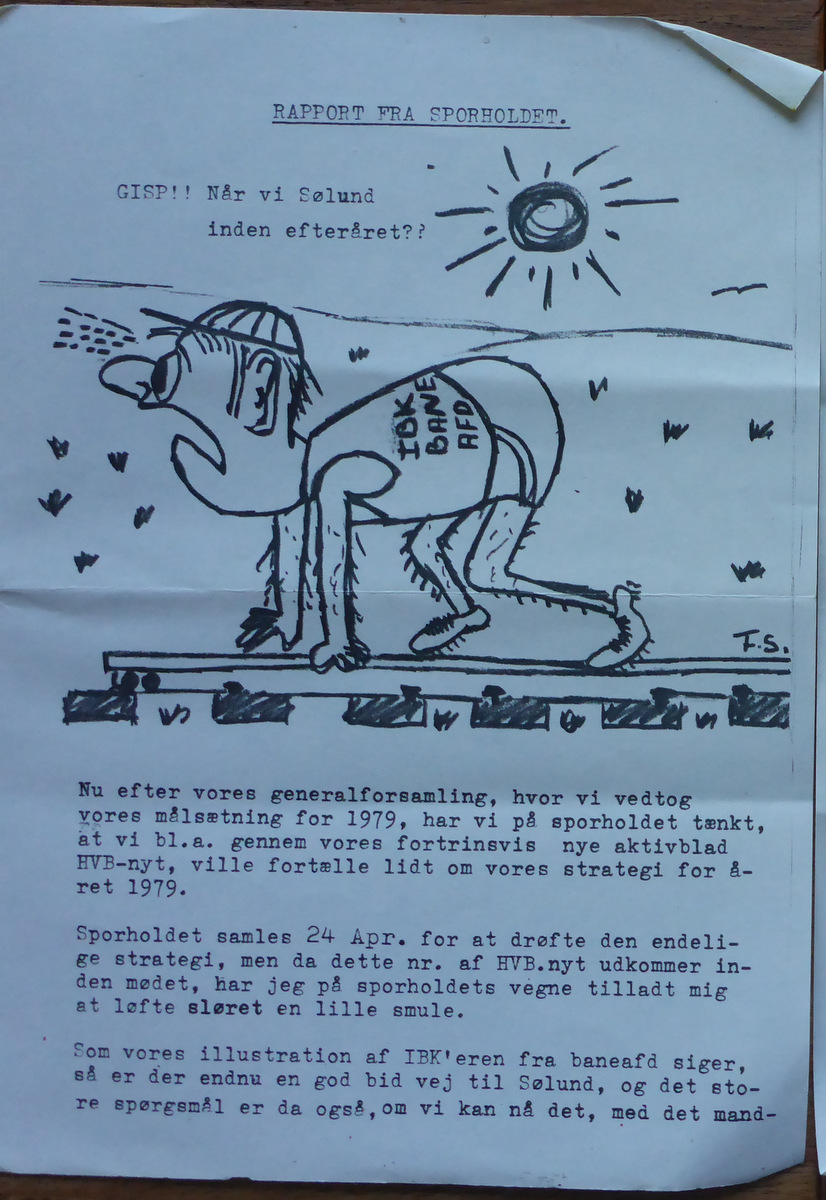 RAPPORT FRA SPORHOLDET.
GISP!! Når vi Sølund
inden efteråret??
IBK
BANE
AFD
F.S.
Nu efter vores generalforsamling, hvor vi vedtog
vores målsætning for 1979, har vi på sporholdet tænkt,
at vi bl.a. gennem vores fortrinsvis nye aktivblad
HVB-nyt, ville fortælle lidt om vores strategi for å-
ret 1979.
Sporholdet samles 24 Apr. for at drøfte den endeli-
ge strategi, men da dette nr. af HVB.nyt udkommer in-
den mødet, har jeg på sporholdets vegne tilladt mig
at løfte sløret en lille smule.
Som vores illustration af IBK'eren fra baneafd siger,
så er der endnu en god bid vej til Sølund, og det sto-
re spørgsmål er da også, om vi kan nå det, med det mand-